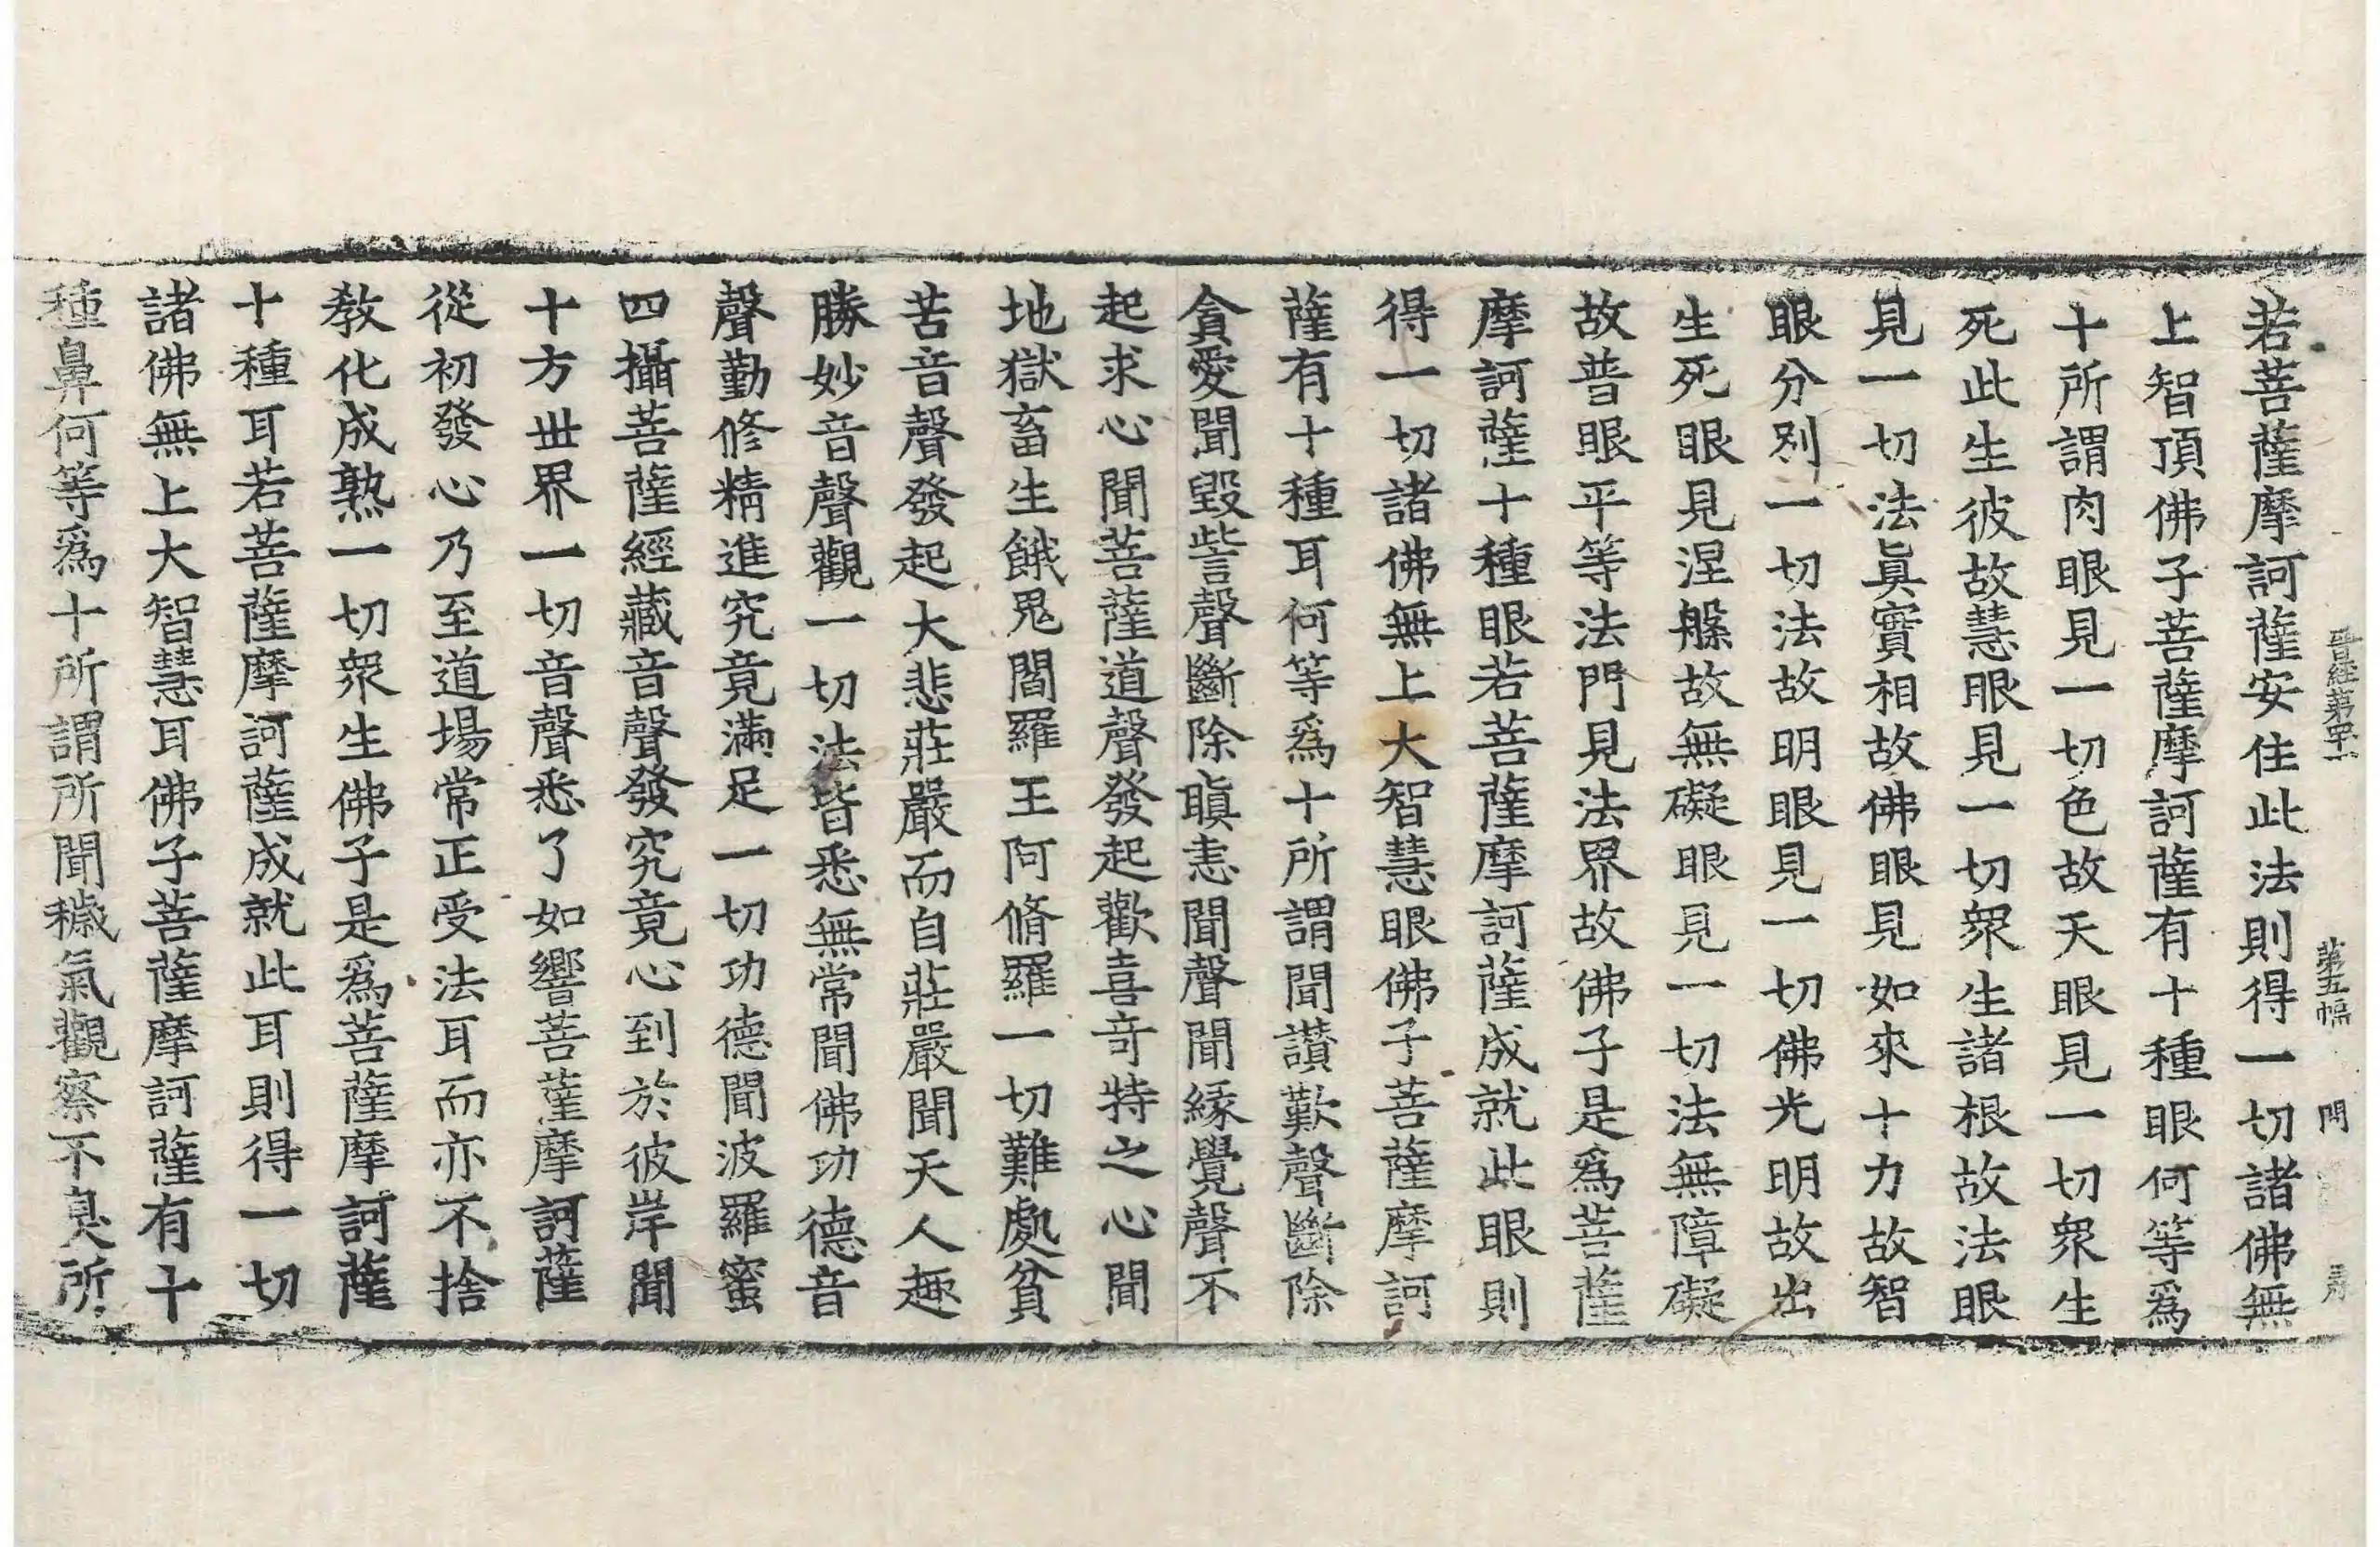 晉經第四十一　第五幅　問
若菩薩摩訶薩安住此法則得一切諸佛無
上智頂佛子菩薩摩訶薩有十種眼何等爲
十所謂肉眼見一切色故天眼見一切衆生
死此生彼故慧眼見一切衆生諸根故法眼
見一切法眞實相故佛眼見如來十力故智
眼分別一切法故明眼見一切佛光明故出
生死眼見涅槃故無礙眼見一切法無障礙
故普眼平等法門見法界故佛子是爲菩薩
摩訶薩十種眼若菩薩摩訶薩成就此眼則
得一切諸佛無上大智慧眼佛子菩薩摩訶
薩有十種耳何等爲十所謂聞讃歎聲斷除
貪愛聞毀訾聲斷除瞋恚聞聲聞緣覺聲不
起求心聞菩薩道聲發起歡喜奇特之心聞
地獄畜生餓鬼閻羅王阿脩羅一切難處貧
苦音聲發起大悲莊嚴而自莊嚴聞天人趣
勝妙音聲觀一切法皆悉無常聞佛功德音
聲勤修精進究竟滿足一切功德聞波羅蜜
四攝菩薩經藏音聲發究竟心到於彼岸聞
十方世界一切音聲悉了如響菩薩摩訶薩
從初發心乃至道場常正受法耳而亦不捨
教化成熟一切衆生佛子是爲菩薩摩訶薩
十種耳若菩薩摩訶薩成就此耳則得一切
諸佛無上大智慧耳佛子菩薩摩訶薩有十
種鼻何等爲十所謂所聞穢氣觀察不臭所